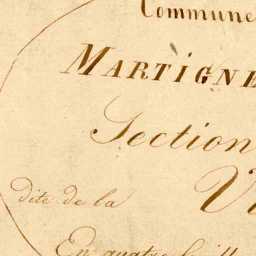 Commune
MARTIGNE
Section
dite de la V
En quatre